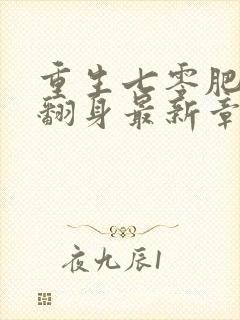 重生七零肥
翻身最新章
夜九辰1